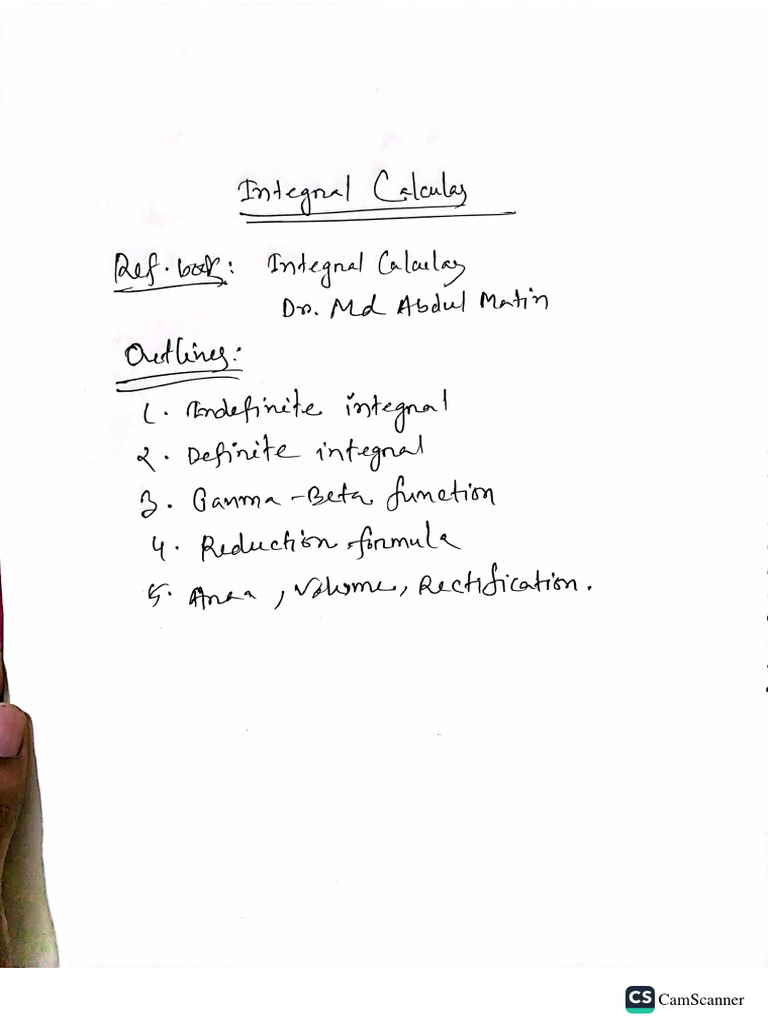 Integral Calculus
Ref. book: Integral Calculus
Dr. Md Abdul Matin
Outlines:
1. Indefinite integral
2. Definite integral
3. Gamma-Beta function
4. Reduction formula
5. Area, Volume, Rectification.
CS CamScanner